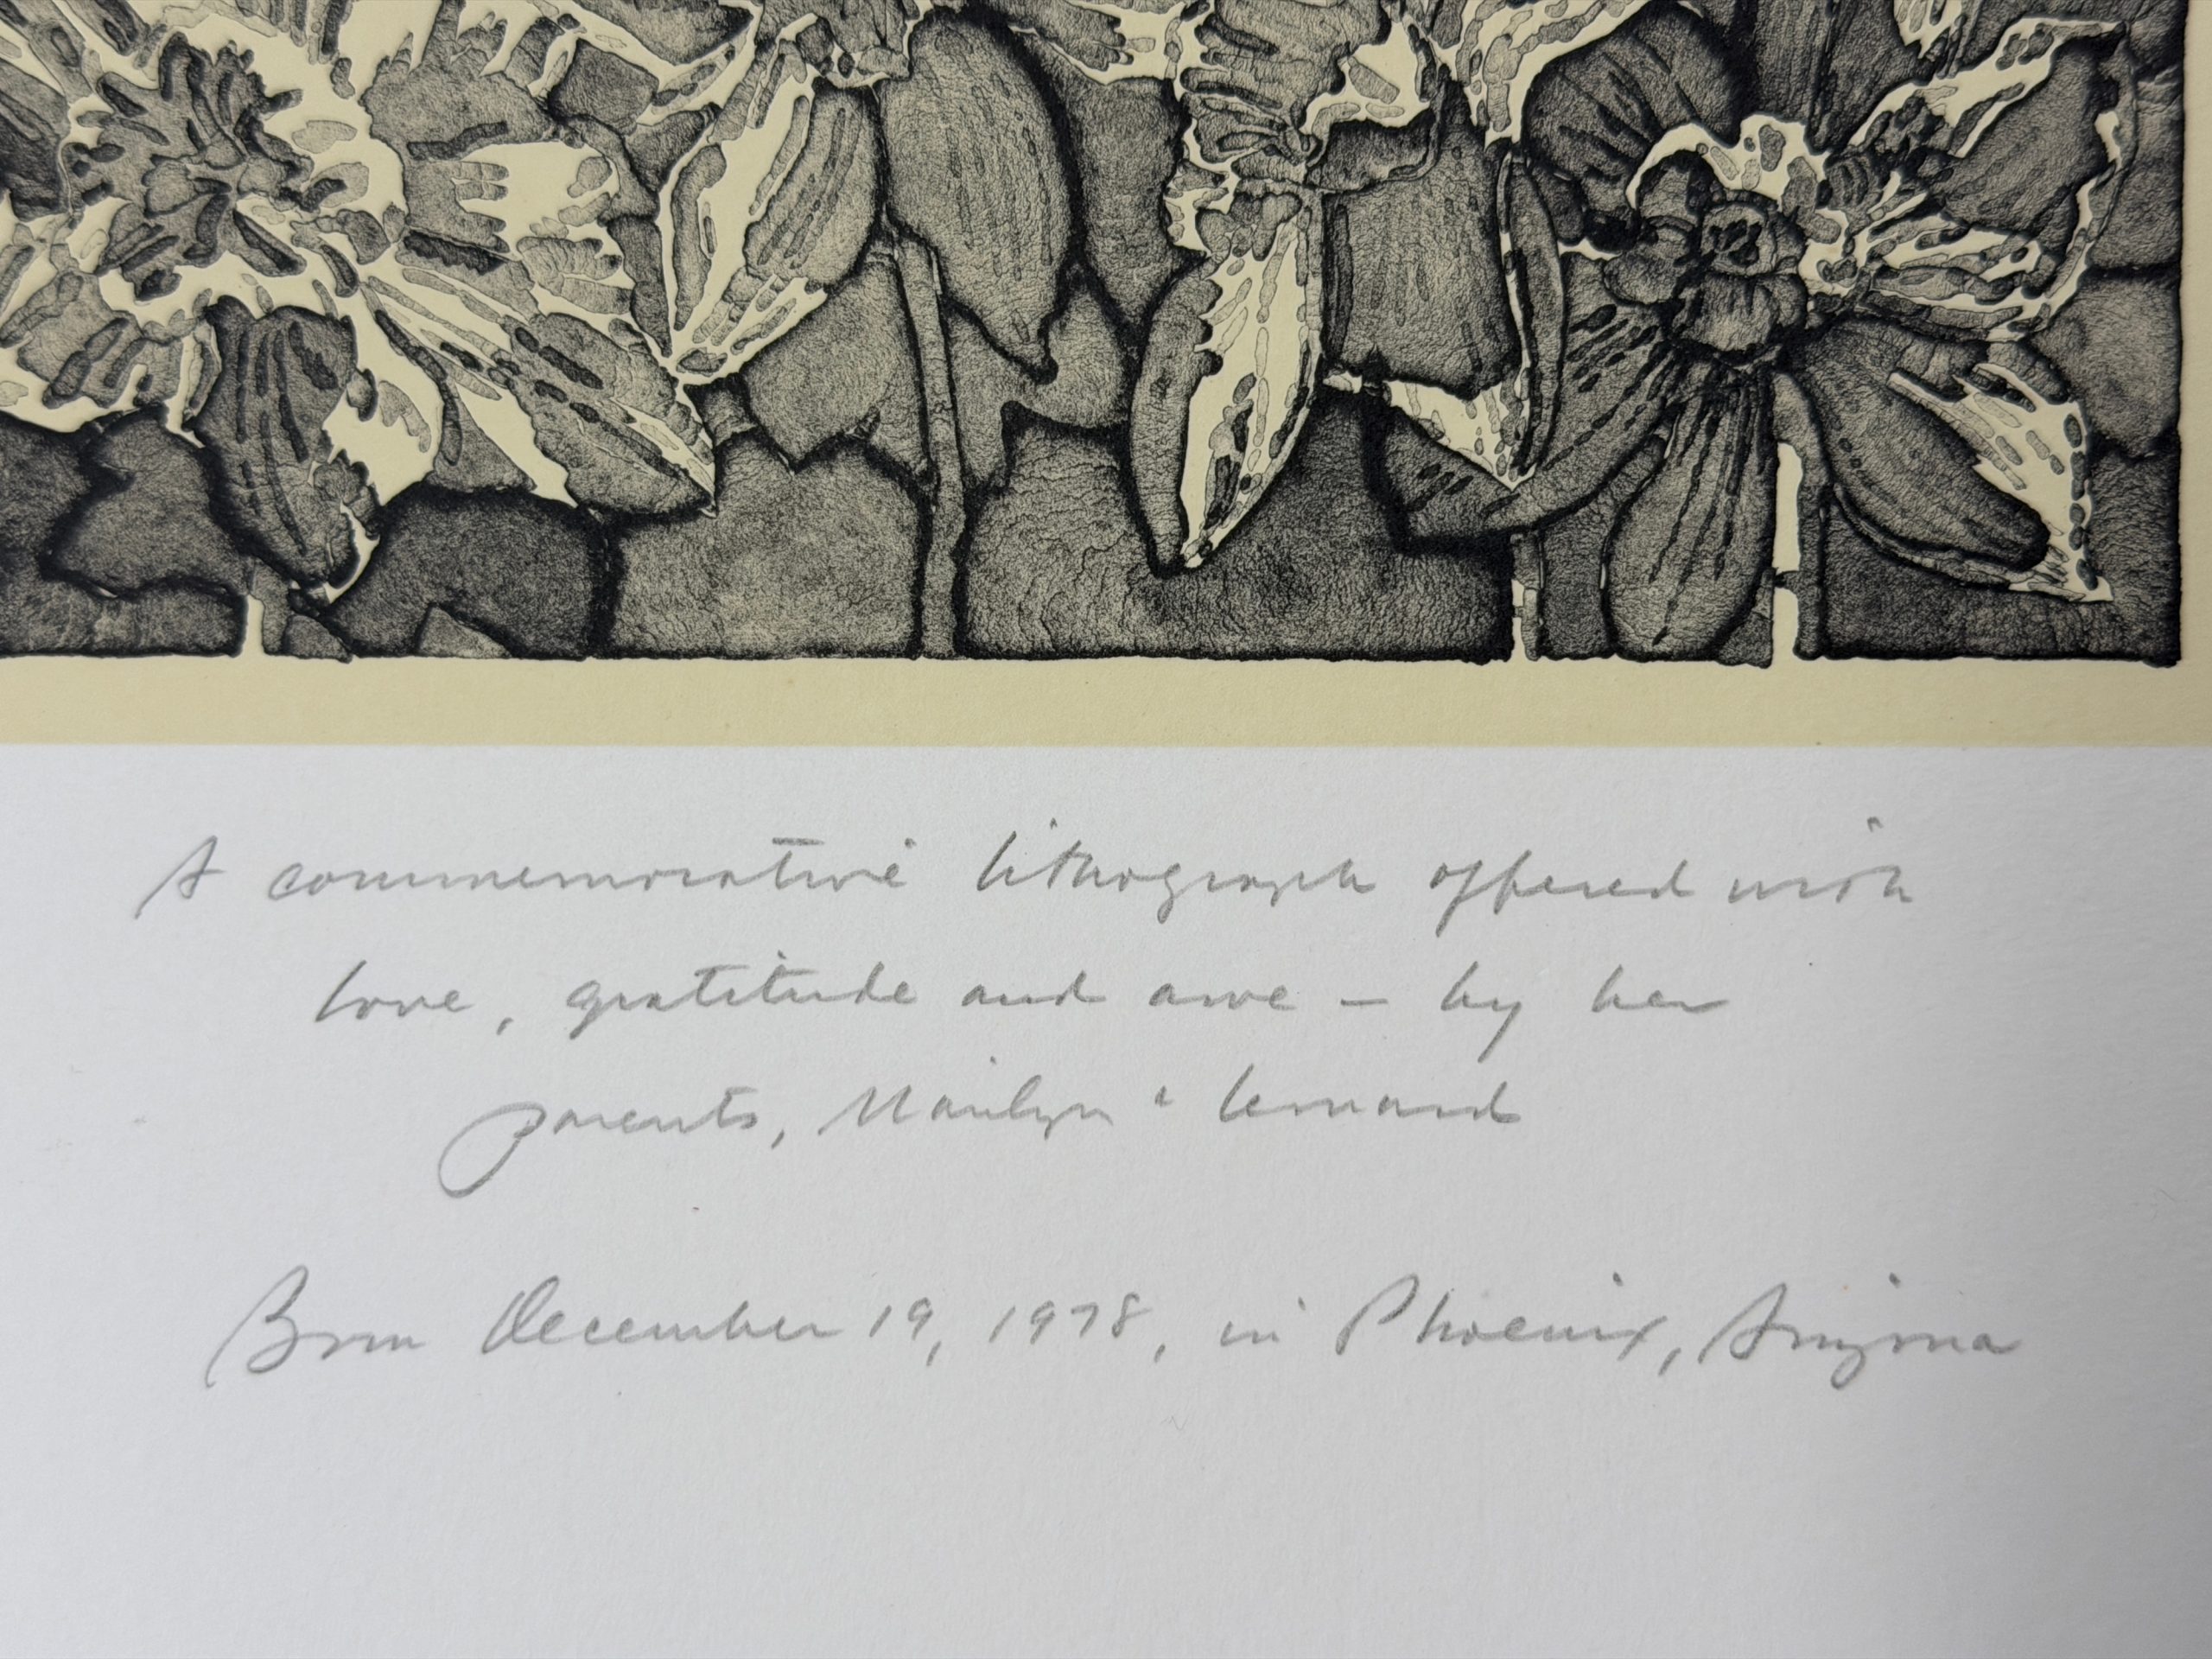 A commemorative lithograph offered with
love, gratitude and awe — by her
parents, Marilyn & Leonard
Born December 19, 1978, in Phoenix, Arizona